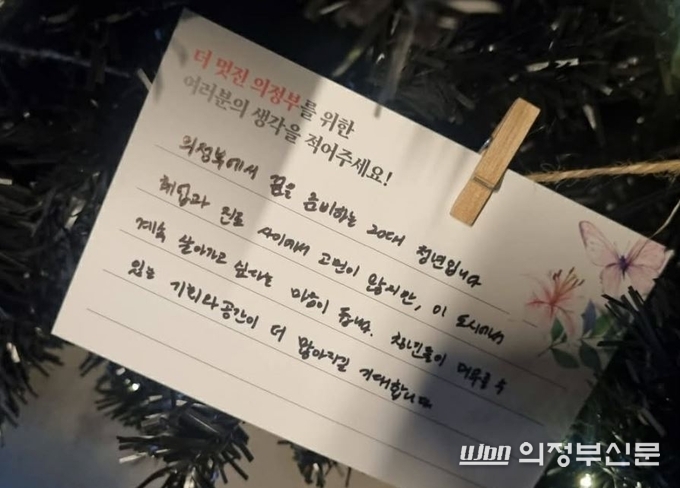 더 멋진 의정부를 위한
여러분의 생각을 적어주세요!
의정부에서 꿈을 준비하는 20대 청년입니다
취업과 진로 사이에서 고민이 많지만, 이 도시에서
계속 살아가고 싶다는 마음이 듭니다. 청년들이 머무를 수
있는 기회와 공간이 더 많아지길 기대합니다
wbn 의정부신문